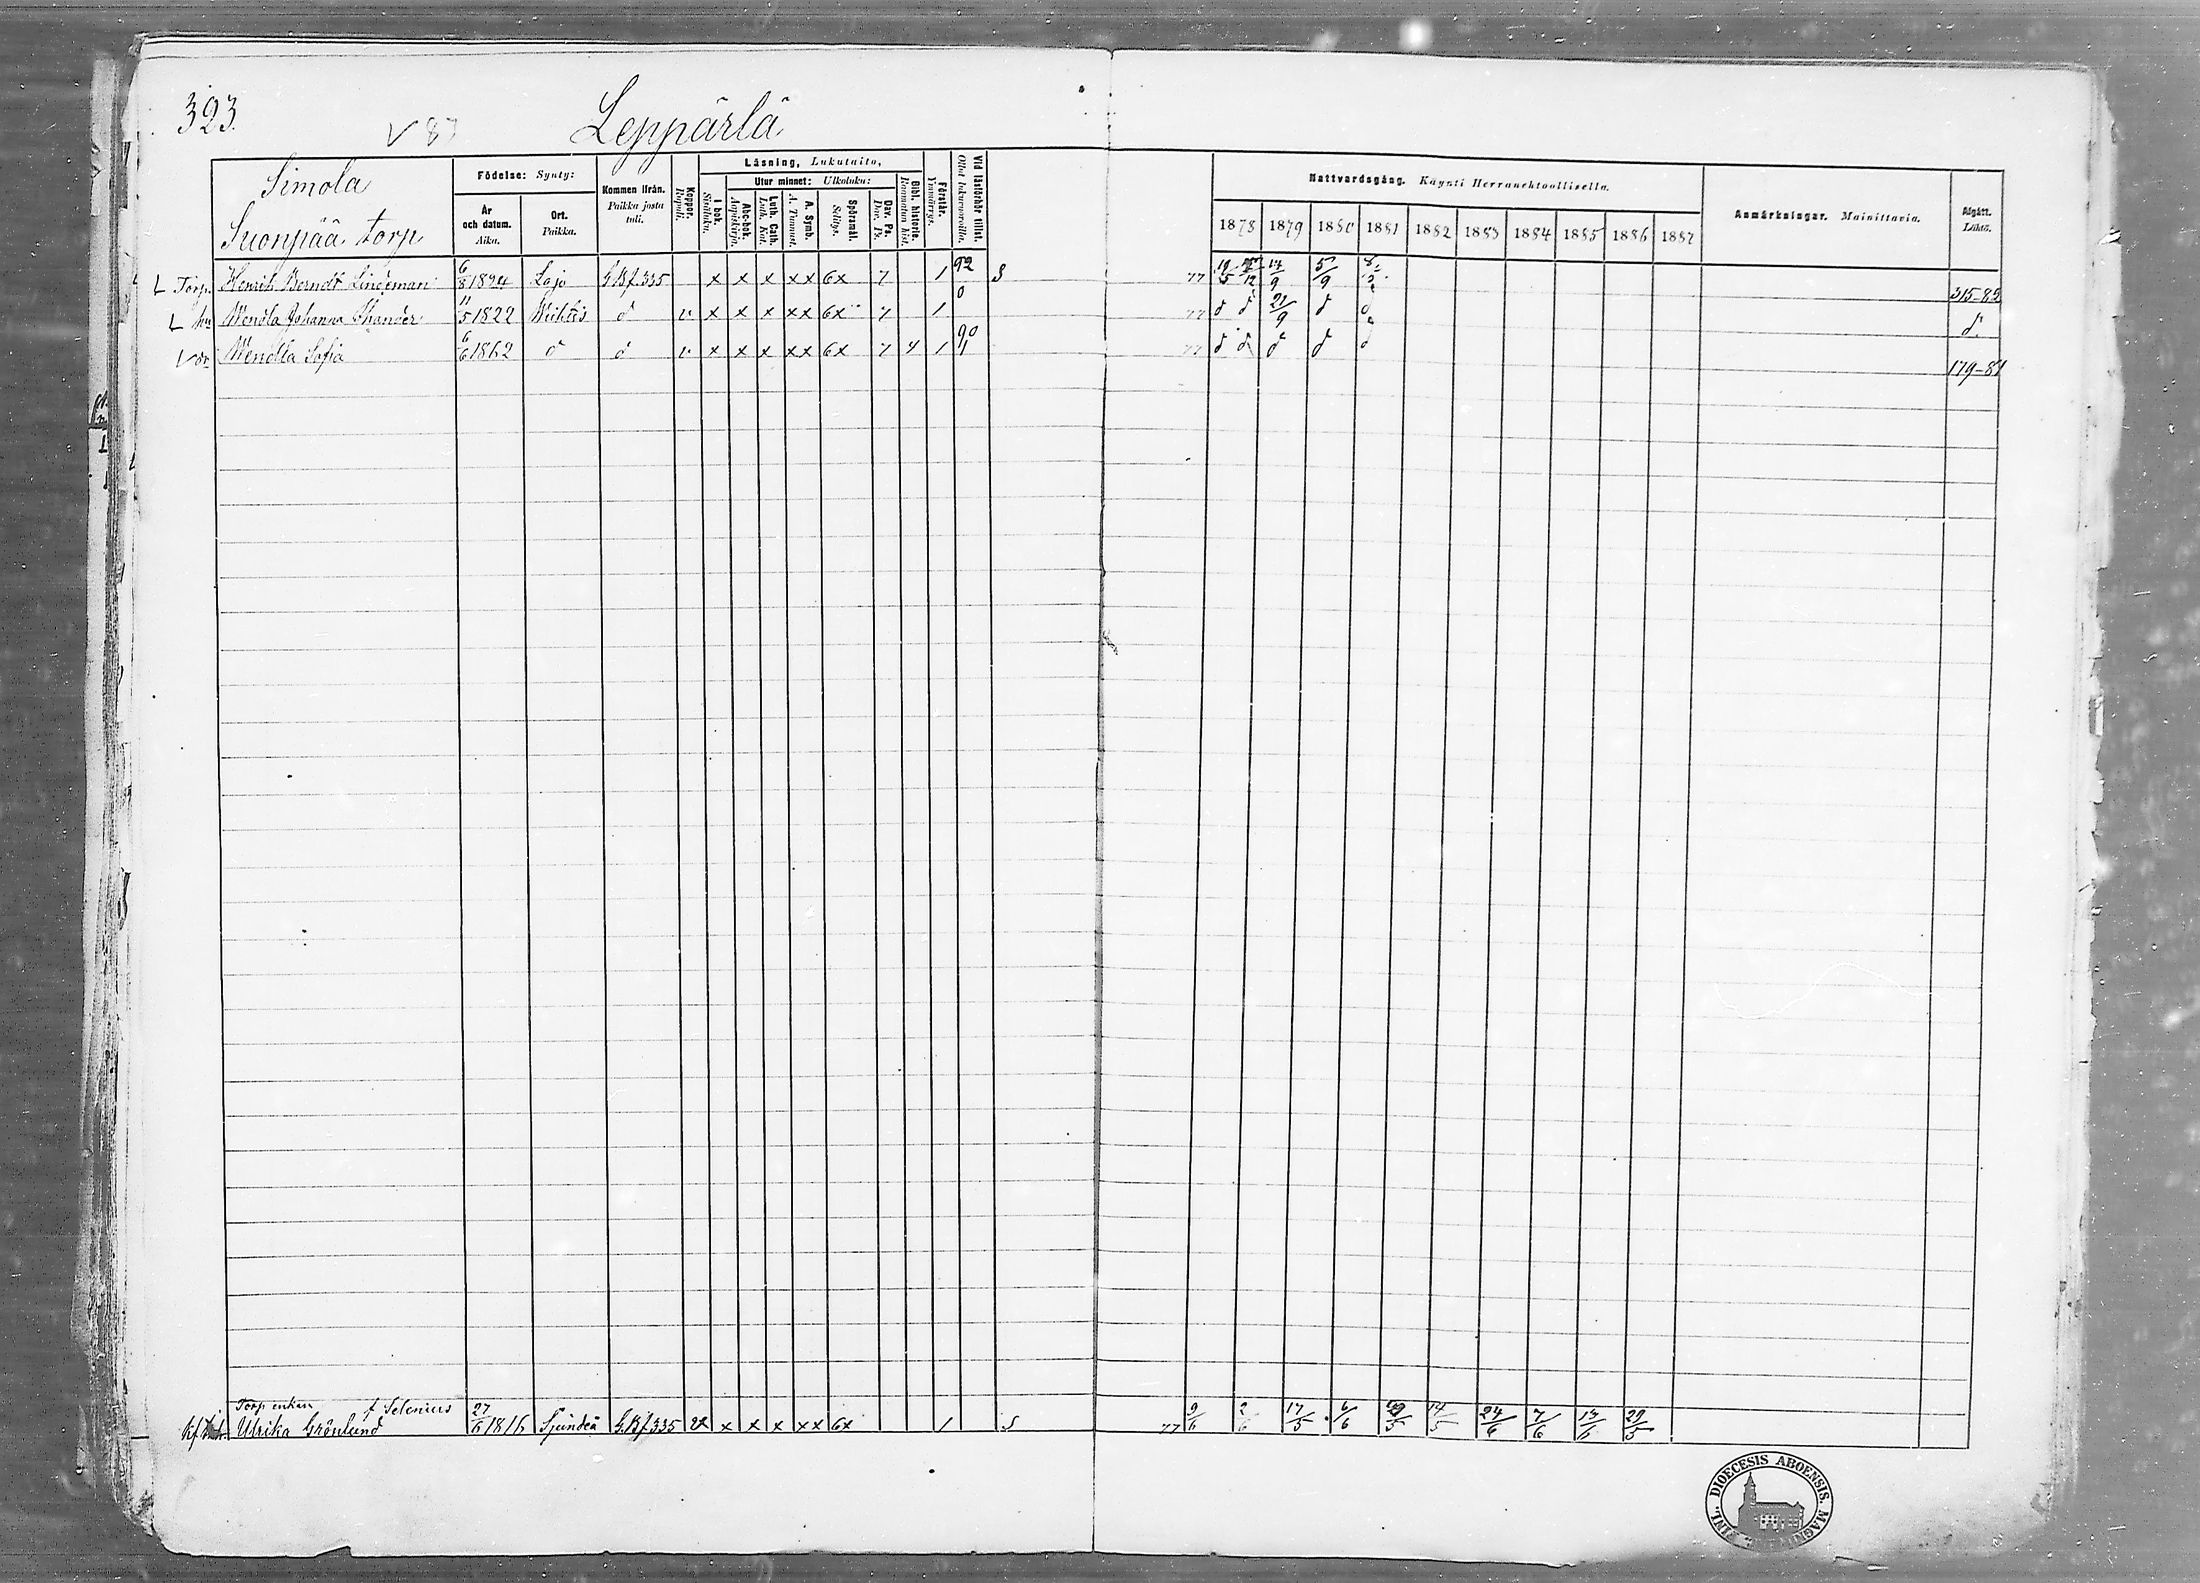 323.
V 87
Leppärlä
Simola
Suonpää torp
Födelse: Synty:
År och datum. Aika.
Ort. Paikka.
Kommen ifrån. Paikka josta tuli.
Koppor. Rupuli.
Läsning, Lukutaito,
I bok. Sisäluku.
Utur minnet: Ulkoluku:
Abc-bok. Aapiskirja.
Luth. Cath. Luth. Kat.
A. Symb. A. Tunnust.
Spörsmål. Selitys.
Dav. Ps. Dav. Ps.
Bibl. historie. Raamatun hist.
Förstår. Ymmärrys.
Vid läsförhör tillst. Ollut lukuvuoroilla.
Nattvardsgång. Käynti Herranehtoollisella.
1878 1879 1880 1881 1882 1883 1884 1885 1886 1887
Anmärkningar. Mainittavia.
Afgått. Lähtö.
L Torp. Henrik Berndt Lindeman 6/8 1824 Lojo S.B.f.335 x x x xx 6x 7 1 92 S 77 5/9 315-85
L hu Wendla Johanna Thander 11/5 1822 Wichtis d v x x x xx 6x 7 1 0 77 d d 21/9 d d d
V dr Wendla Sofia 6/6 1862 d d v x x x xx 6x 7 4 1 90 77 d d d d d 179-81
Torp enkan f Selenius
Ulrika Grönlund 27/6 1816 Sjundeå S.B.f.335 x x x xx 6x 1 S 77 9/6 2/6 17/5 6/6 14/5 24/6 7/6 29/5
FINL. DIOECESIS ABOENSIS. MAGN